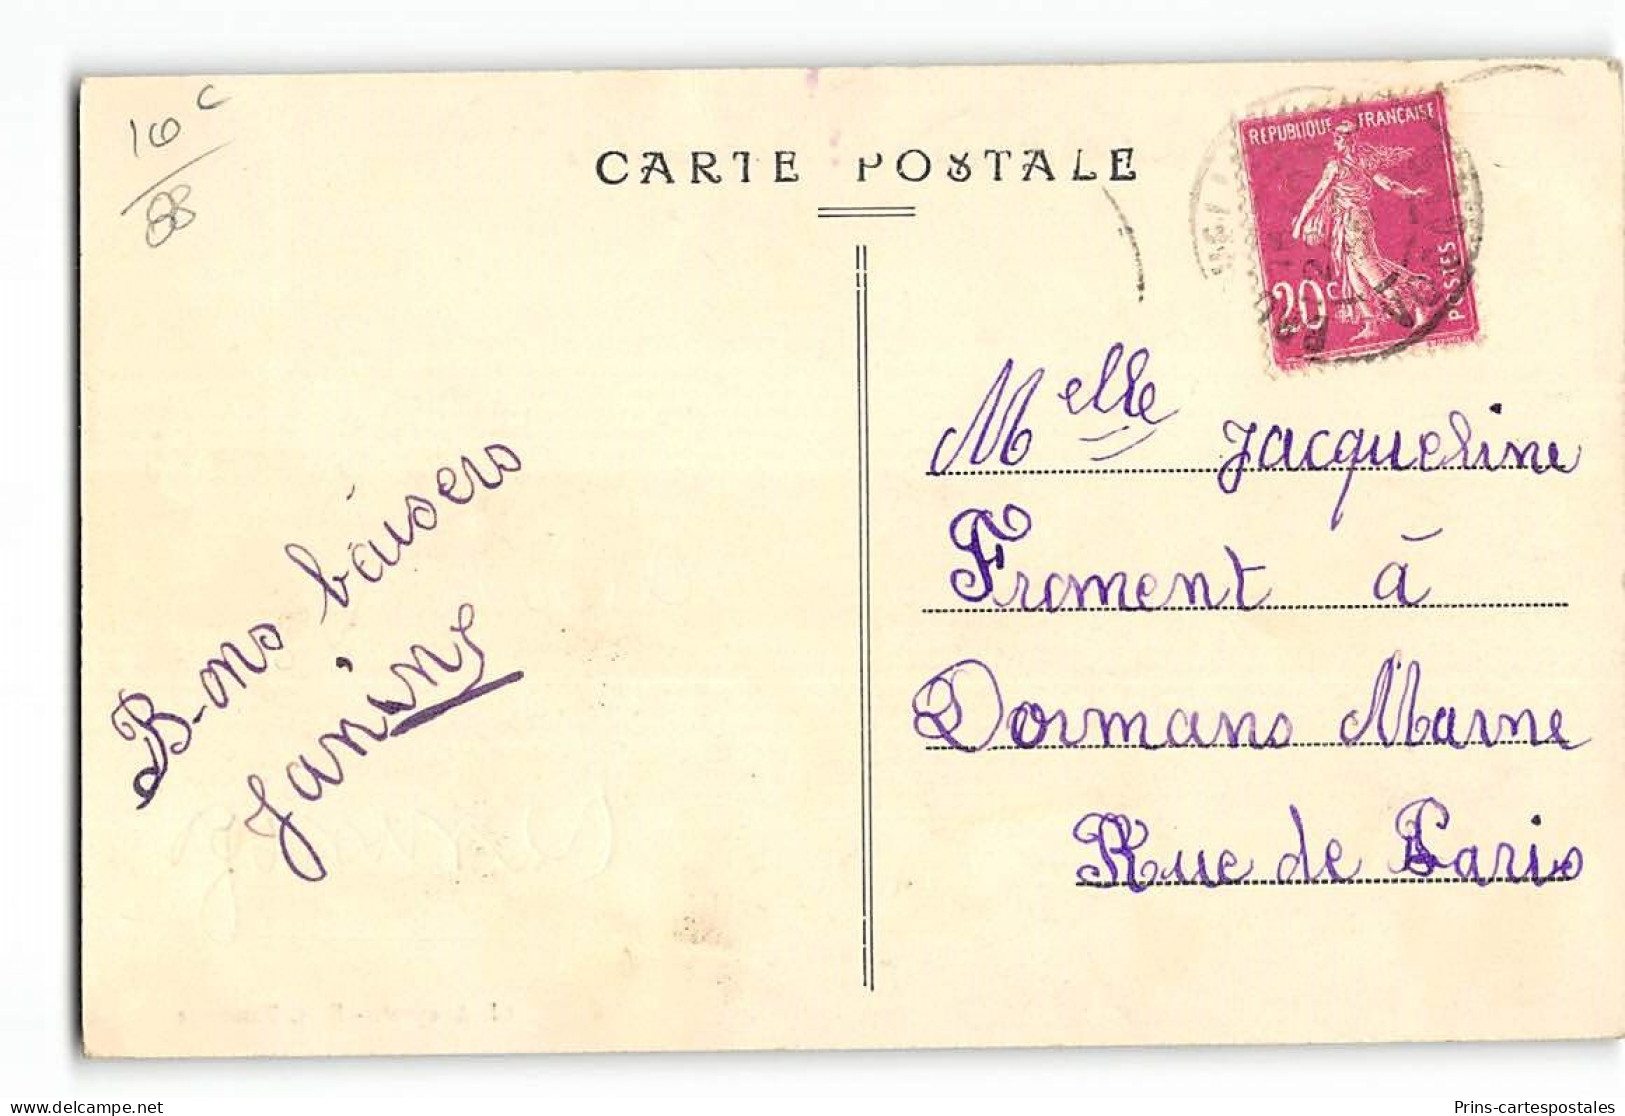 16 c
88
CARTE POSTALE
REPUBLIQUE FRANÇAISE
20c
POSTES
Melle Jacqueline
Froment à
Dormans Marne
Rue de Paris
Bons baisers
Janine
www.delcampe.net
Prins-cartespostales